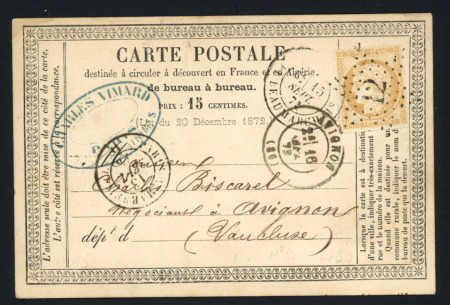 CARTE POSTALE
destinée à circuler à découvert en France et en Algérie,
de bureau à bureau.
PRIX : 15 CENTIMES.
(Loi du 20 Décembre 1872.)
CHARLES NIMARD
PARIS
22
15
SEPT
AVIGNON
16
SEPT
73
Monsieur
Charles Biscarel
Négociant à Avignon
dépt d (Vaucluse)
L'adresse seule doit être mise de ce côté de la carte.
L'autre côté est réservé à la correspondance.
Lorsque la carte est à destination
d'une ville, indiquer très-exactement la
rue et le numéro de la maison.
Quand elle est destinée pour une
commune rurale, indiquer le nom du
bureau de poste qui la dessert.